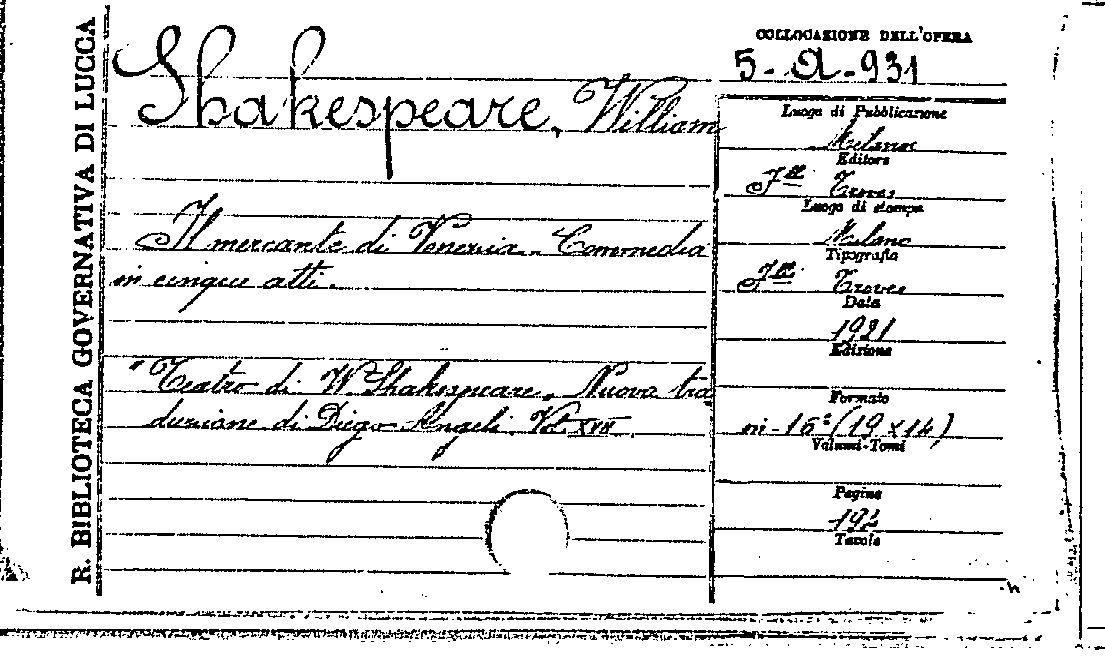 R. BIBLIOTECA GOVERNATIVA DI LUCCA
Shakespeare, William
Il mercante di Venezia. Commedia
in cinque atti.
"Teatro di W. Shakespeare. Nuova tra
duzione di Diego Angeli. Vol. XVII
COLLOCAZIONE DELL'OPERA
5-A-931
Luogo di Pubblicazione
Milano
Editore
F.lli Treves
Luogo di stampa
Milano
Tipografia
F.lli Treves
Data
1921
Edizione
Formato
in-16° (19 x 14)
Volumi-Tomi
Pagine
192
Tavole